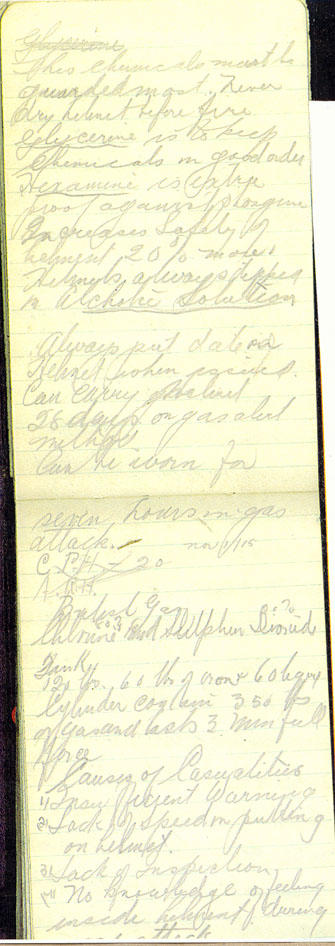 Glycerine
This chemicals must be
guarded most. Never
dry helmet before fire
Glycerine is to keep
chemicals in good order
Hexamine is extra
proof against Phosgene
Increases safety of
helmet 20% more.
Helmets always dipped
in Alcholic Solution
Always put date on
Helmet when issued.
Can carry
28 days on gas alert
method
Can be worn for
seven hours in gas
attack. Nov 1/15
P.H. 20
British Gas
Chlorine and Sulpher Dioxid
120 lbs. 60 lbs of iron & 60 liquid
Cylinder contain 350 lbs
of gas and lasts 3 Min full
force
Causes of Casualities
1) Insufficient Warning
2) Lack of speed in putting
on helmet.
3) Lack of Inspection
4) No knowledge of feeling
inside helmet during
attack